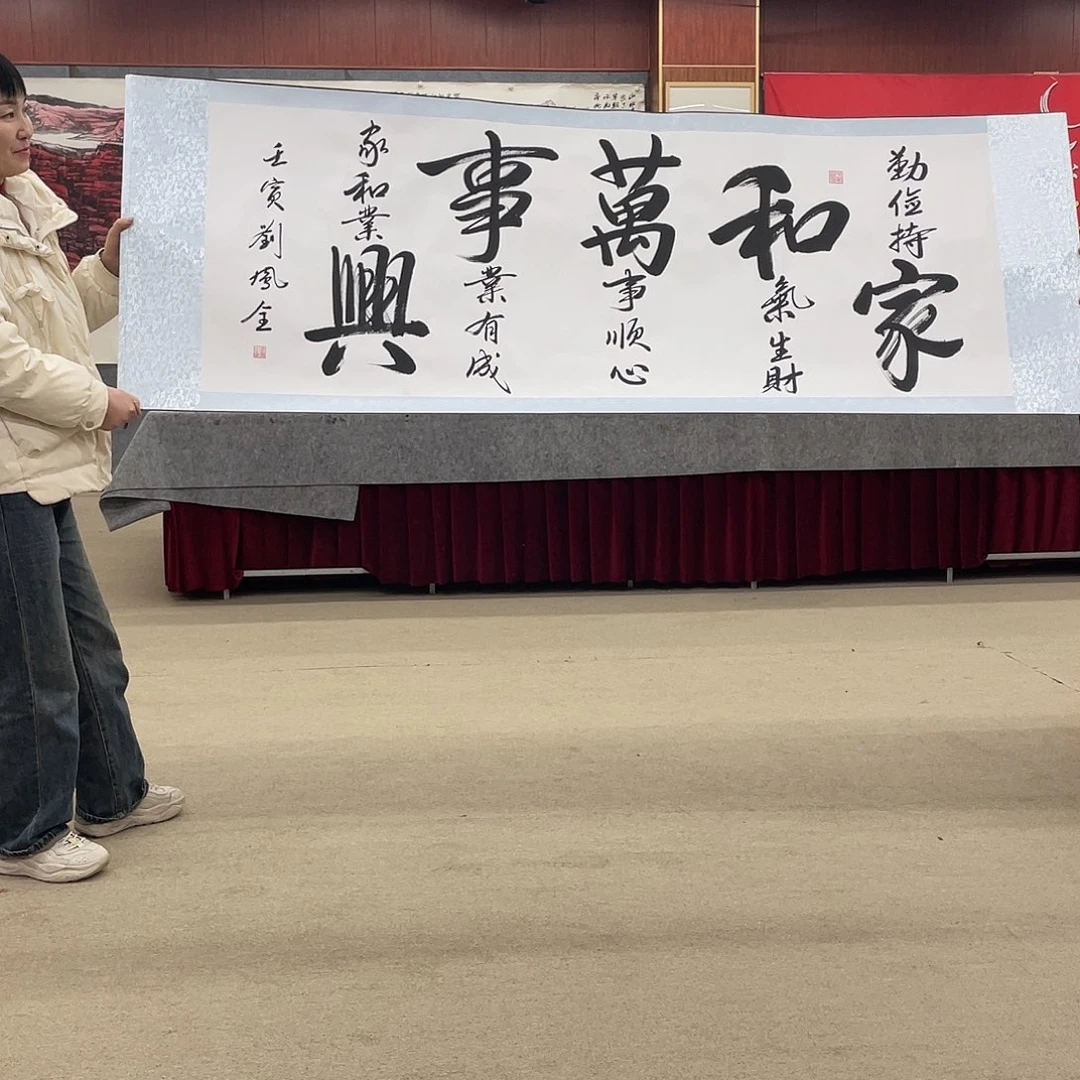 勤俭持家
和氣生財
萬事順心
事業有成
家和業興
壬寅劉風全